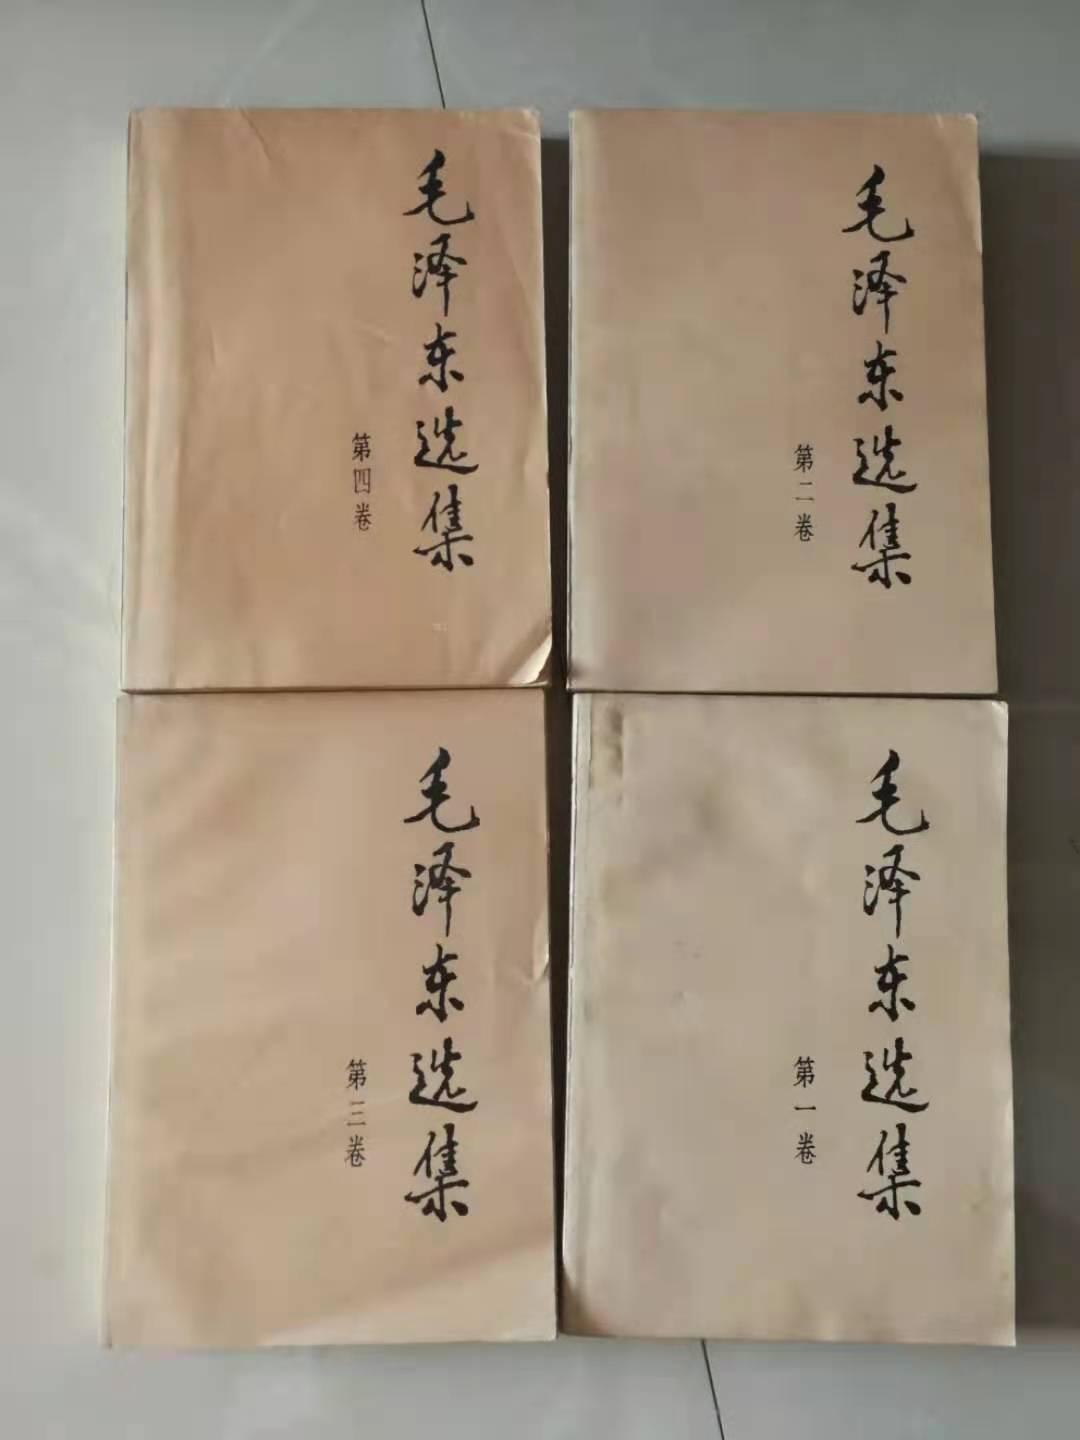 毛泽东选集
第四卷
毛泽东选集
第二卷
毛泽东选集
第三卷
毛泽东选集
第一卷